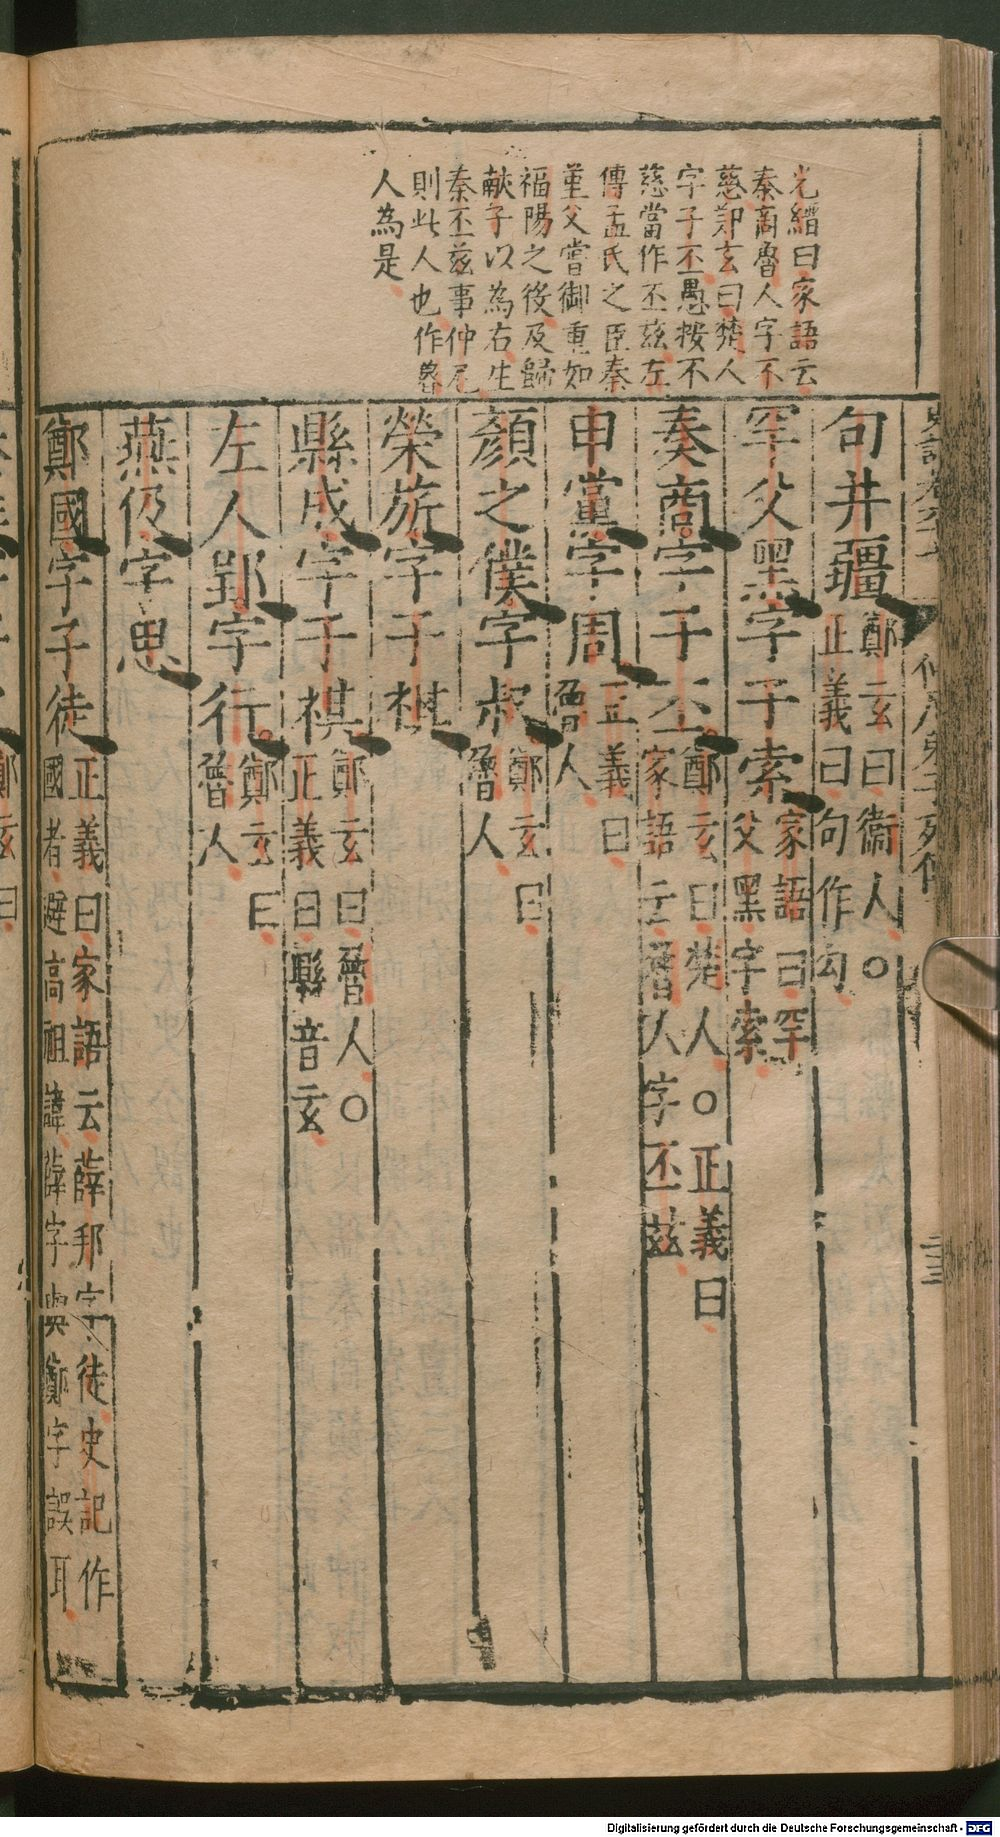 光縉曰家語云
秦商魯人字不
慈鄭玄曰楚人
字子丕愚按不
慈當作丕茲左
傳孟氏之臣秦
堇父嘗御重如
福陽之後及歸
獻子以為右生
秦丕茲事仲尼
則此人也作魯
人為是
仲尼弟子列傳
句井疆鄭玄曰衞人○
正義曰句作勾
罕父黑字子索家語曰罕
父黑字索
秦商字子丕鄭玄曰楚人○正義曰
家語云魯人字丕茲
申黨字周正義曰
魯人
顏之僕字叔鄭玄曰
魯人
榮旂字子棋
縣成字子祺鄭玄曰魯人○
正義曰縣音玄
左人郢字行鄭玄曰
魯人
燕伋字思
鄭國字子徒正義曰家語云薛邦字徒史記作
國者避高祖諱薛字與鄭字誤耳
Digitalisierung gefördert durch die Deutsche Forschungsgemeinschaft - DFG